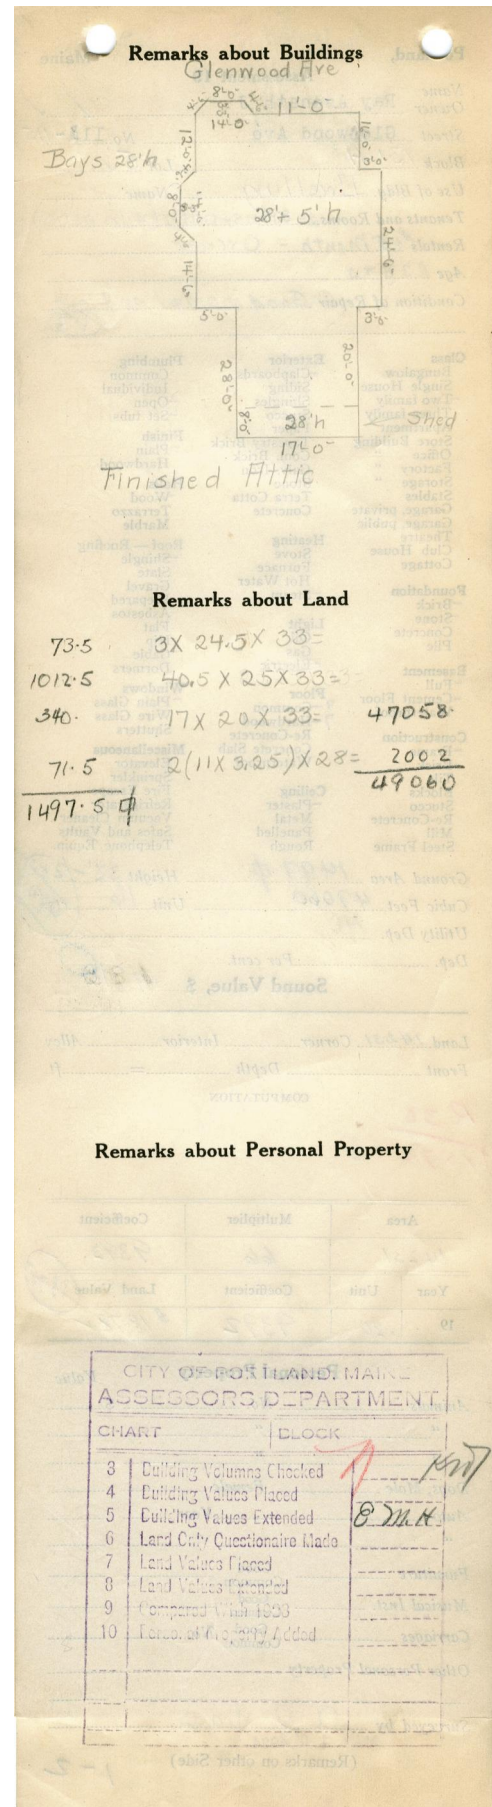 Remarks about Buildings
Glenwood Ave
8'-0"
11'-0
14'-0"
Bays 28'h
12'-0"
3'-0"
8'-0"
28'+ 5' h
24'-6"
14'-6"
5'-0"
3'-0"
28'-0"
20'-0"
8'-0"
28'h
Shed
17'-0"
Finished Attic
Remarks about Land
73.5 3 X 24.5 X 33 =
1012.5 40.5 X 25 X 33 =
340. 17 X 20 X 33 = 47058.
71.5 2(11 X 3.25) X 28 = 2002
1497.5 49060
Remarks about Personal Property
CITY OF PORTLAND, MAINE
ASSESSORS DEPARTMENT
CHART BLOCK
3 Building Volumns Checked
4 Building Values Placed
5 Building Values Extended E.M.H.
6 Land Only Questionaire Made
7 Land Values Placed
8 Land Values Extended
9 Compared With 1938
10 Personal Property Added